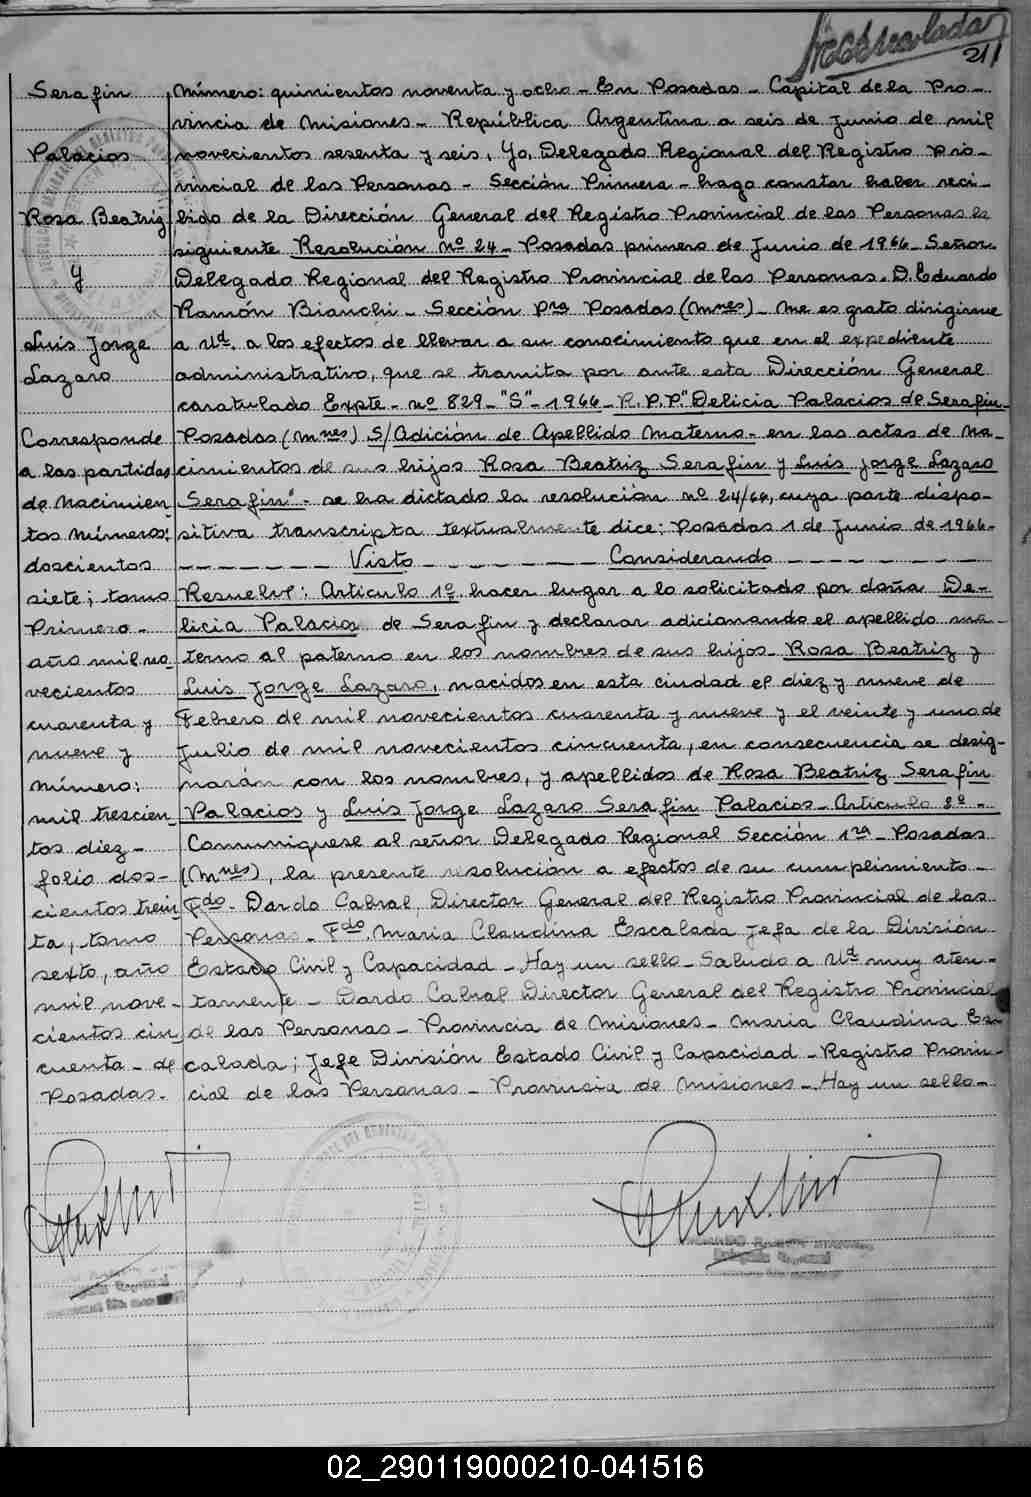 211
Serafin
Palacios
Rosa Beatriz
y
Luis Jorge
Lazaro
Corresponde
a las partidas
de Nacimien-
tos números:
doscientos
siete; tomo
Primero-
año mil no
vecientos
cuarenta y
nueve y
número:
mil trescien-
tos diez-
folio dos-
cientos trein
ta, tomo
sexto, año
mil nove-
cientos cin
cuenta - de
Posadas.-
Número: quinientos noventa y ocho - En Posadas - Capital de la Pro-
vincia de Misiones - República Argentina a seis de Junio de mil
novecientos sesenta y seis, Yo, Delegado Regional del Registro Pro-
vincial de las Personas - Sección Primera - hago constar haber reci-
bido de la Dirección General del Registro Provincial de las Personas la
siguiente Resolución nº 24 - Posadas primero de Junio de 1966 - Señor
Delegado Regional del Registro Provincial de las Personas. D. Eduardo
Ramón Bianchi - Sección Pra Posadas (Mnes) - Me es grato dirigirme
a Ud. a los efectos de llevar a su conocimiento que en el expediente
administrativo, que se tramita por ante esta Dirección General
caratulado Expte - nº 829 - "S" - 1966 - P.P.P." Delicia Palacios de Serafin-
Posadas (Mnes) S/Adición de Apellido Materno - en las actas de Na-
cimientos de sus hijos Rosa Beatriz Serafin y Luis Jorge Lazaro
Serafin" - se ha dictado la resolución nº 24/66, cuya parte dispo-
sitiva transcripta textualmente dice: Posadas 1 de Junio de 1966-
- - - - - - - Visto - - - - - - - - - Considerando - - - - - - - - - -
Resuelve: Articulo 1º hacer lugar a lo solicitado por doña De-
licia Palacios de Serafin y declarar adicionando el apellido ma-
terno al paterno en los nombres de sus hijos - Rosa Beatriz y
Luis Jorge Lazaro, nacidos en esta ciudad el diez y nueve de
Febrero de mil novecientos cuarenta y nueve y el veinte y uno de
Julio de mil novecientos cincuenta, en consecuencia se desig-
narán con los nombres, y apellidos de Rosa Beatriz Serafin
Palacios y Luis Jorge Lazaro Serafin Palacios - Articulo 2º -
Comuniquese al señor Delegado Regional Sección 1ra - Posadas
(Mnes), la presente resolución a efectos de su cumplimiento -
Fdo - Dardo Cabral, Director General del Registro Provincial de las
Personas - Fdo. Maria Claudina Escalada Jefa de la División
Estado Civil y Capacidad - Hay un sello - Saludo a Ud muy aten-
tamente - Dardo Cabral Director General del Registro Provincial
de las Personas - Provincia de Misiones - Maria Claudina Es-
calada; Jefe División Estado Civil y Capacidad - Registro Provin-
cial de las Personas - Provincia de Misiones - Hay un sello -
02_290119000210-041516